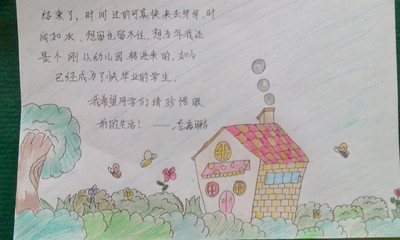 结束了，时间过的可真快来去匆匆，时
间如水，想留也留不住，想当年我还
是个刚从幼儿园转进来的，如今
已经成为了快毕业的学生。
我希望同学们请珍惜眼
前的生活！——